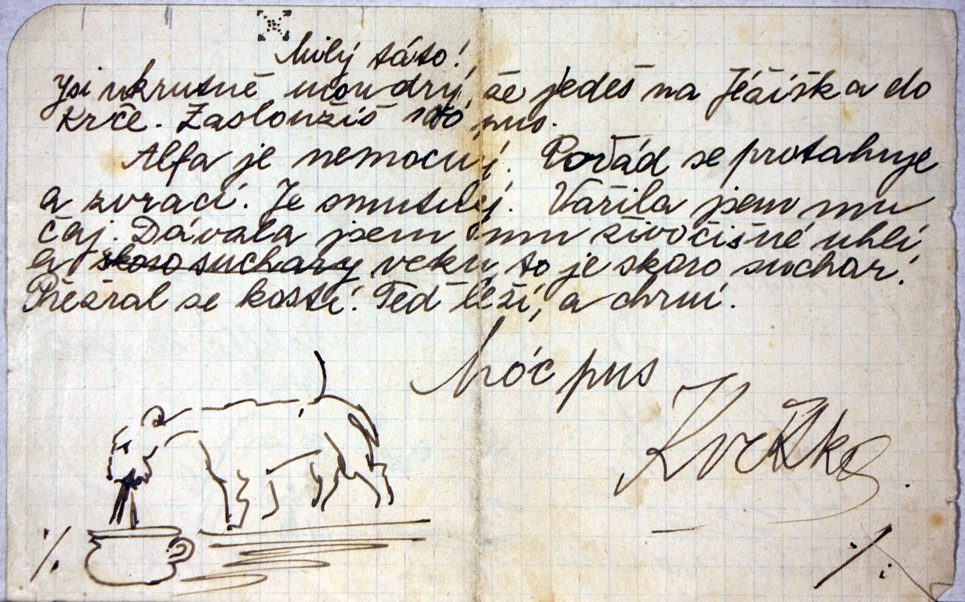 Milý táto!
Jsi ukrutně moudrý, že jedeš na Ježíška do
Krče. Zasloužíš sto pus.
Alfa je nemocný. Pořád se protahuje
a zvrací. Je smutný. Vařila jsem mu
čaj. Dávala jsem mu živočišné uhlí
a skoro suchary veku, to je skoro suchar!
Přežral se kostí. Teď leží, a chrní.
Móc pus